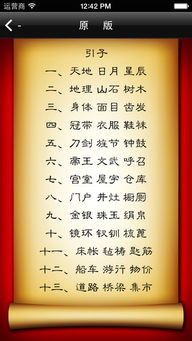 运营商 12:42 PM
原 版
引子
一、天地 日月 星辰
二、地理 山石 树木
三、身体 面目 齿发
四、冠带 衣服 鞋袜
五、刀剑 旌节 钟鼓
六、帝王 文武 呼召
七、宫室 屋宇 仓库
八、门户 井灶 橱厕
九、金银 珠玉 绢帛
十、镜环 钗钏 梳篦
十一、床帐 毡褥 匙筋
十二、船车 游行 物价
十三、道路 桥梁 集市